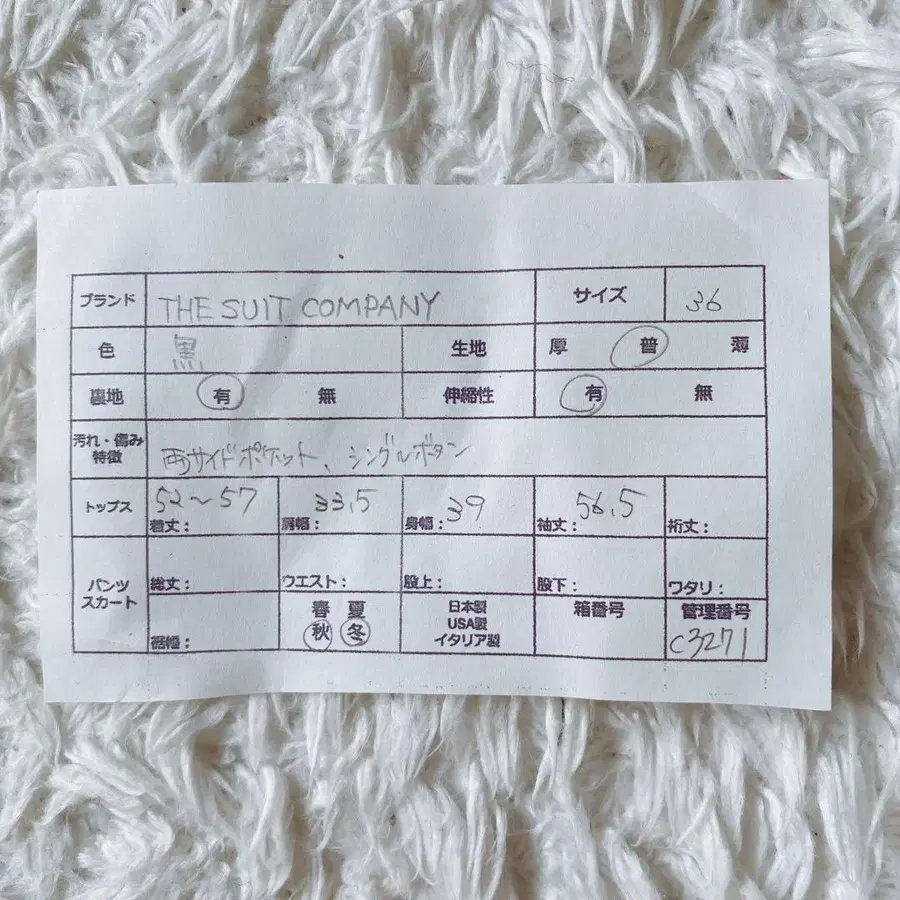 ブランド THE SUIT COMPANY サイズ 36
色 黒 生地 厚 普 薄
裏地 有 無 伸縮性 有 無
汚れ・傷み
特徴
両サイドポケット、シングルボタン
トップス 52～57 33.5 39 56.5
着丈： 肩幅： 身幅： 袖丈： 裄丈：
パンツ
スカート
総丈： ウエスト： 股上： 股下： ワタリ：
裾幅：
春 夏
秋 冬
日本製
USA製
イタリア製
箱番号
管理番号
C3271